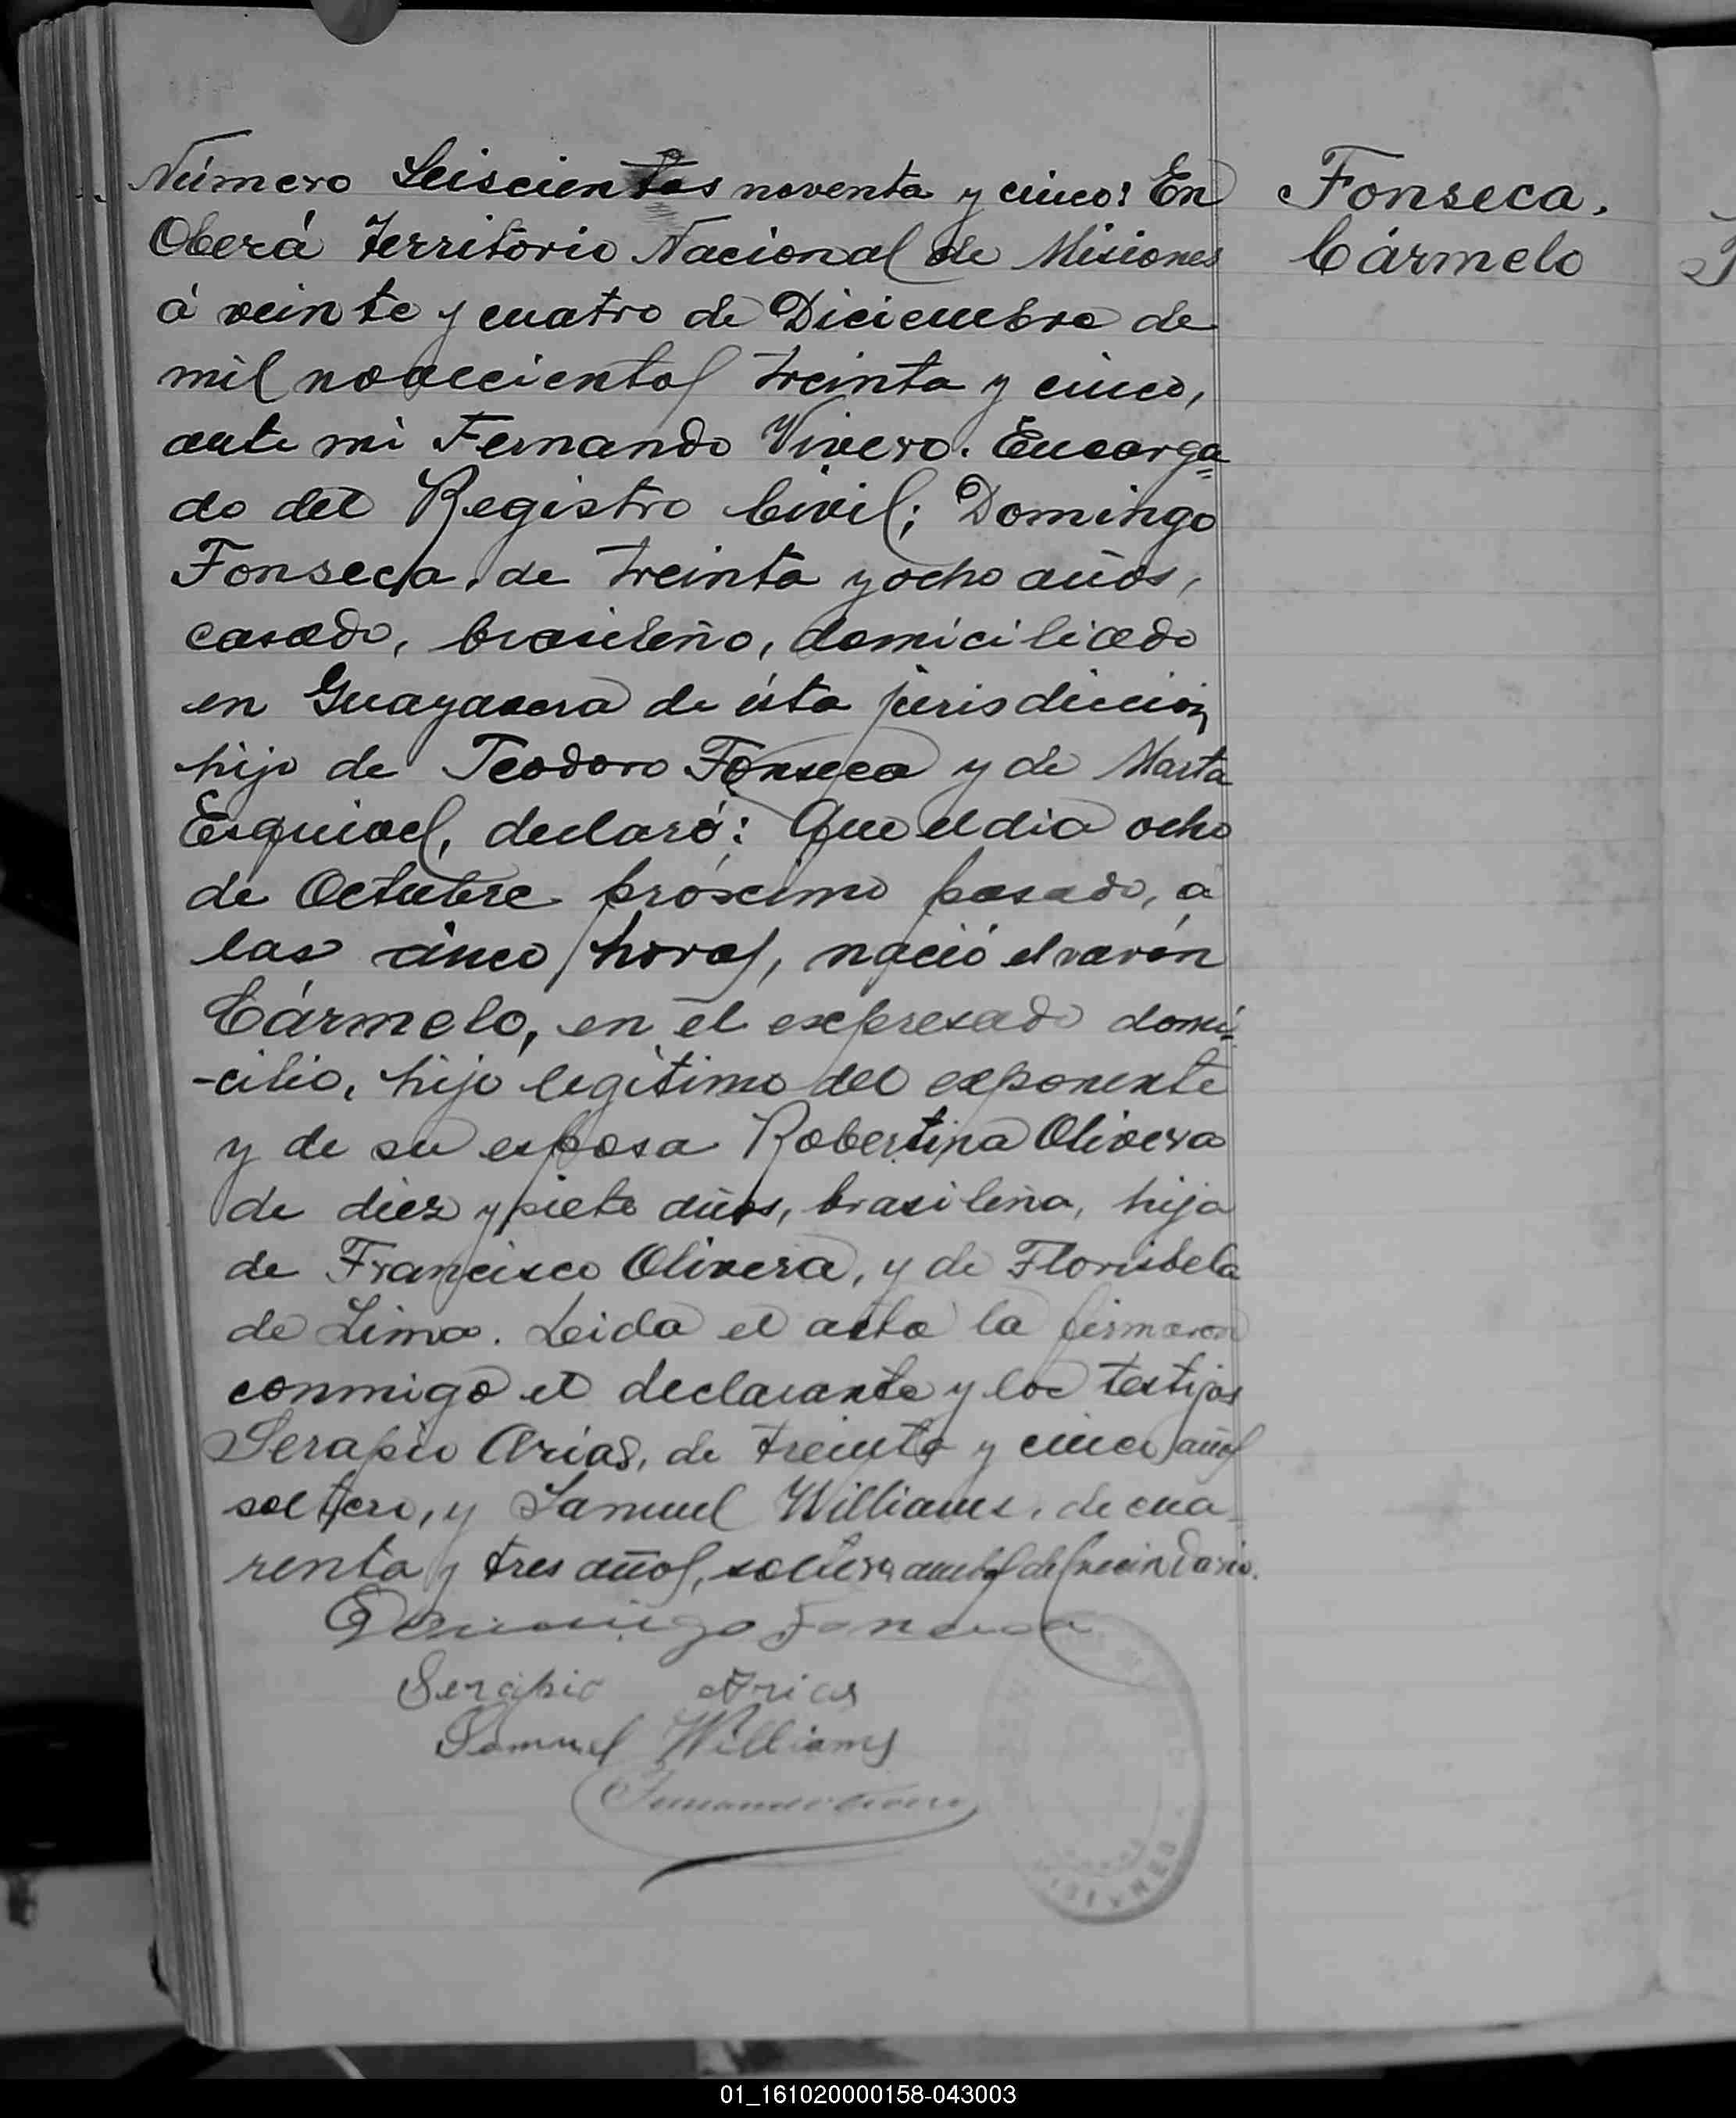 Número Seiscientos noventa y cinco: En
Oberá Territorio Nacional de Misiones
á veinte y cuatro de Diciembre de
mil novecientos treinta y cinco,
ante mi Fernando Vivero. Encarga=
do del Registro Civil; Domingo
Fonseca, de treinta y ocho años,
casado, brasileño, domiciliado
en de ésta jurisdicción
hijo de Teodoro Fonseca y de Marta
Esquivel, declaró: Que el dia ocho
de Octubre próximo pasado, á
las cinco horas, nació el varón
Cármelo, en el expresado domi-
-cilio, hijo legitimo del exponente
y de su esposa Robertina Olivera
de diez y siete años, brasileña, hija
de Francisco Olivera, y de Florisbela
de Lima. Leida el acta la firmaron
conmigo el declarante y los testigos
Serapio Arias, de treinta y cinco años
soltero, y Samuel Williams, de cua-
renta y tres años, soltero ambos del vecindario.
Domingo Fonseca
Serapio Arias
Samuel Williams
Fernando Vivero
Fonseca,
Cármelo
MISIONES
01_161020000158-043003